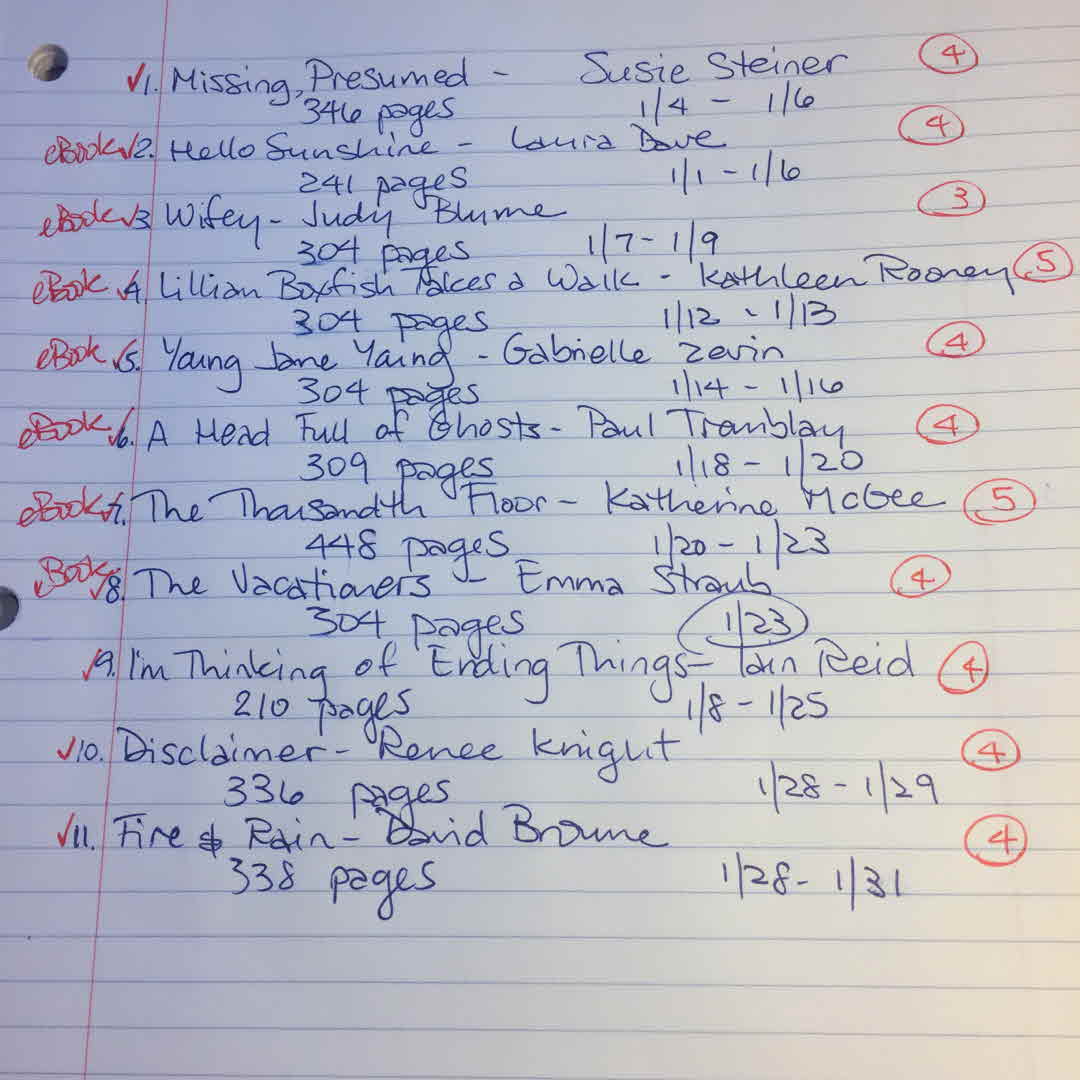 ✓1. Missing, Presumed - Susie Steiner 4
346 pages 1/4 - 1/6
eBook ✓2. Hello Sunshine - Laura Dave 4
241 pages 1/1 - 1/6
eBook ✓3 Wifey - Judy Blume 3
304 pages 1/7 - 1/9
eBook ✓4. Lillian Boxfish Takes a Walk - Kathleen Rooney 5
304 pages 1/12 - 1/13
eBook ✓5. Young Jane Young - Gabrielle Zevin 4
304 pages 1/14 - 1/16
eBook ✓6. A Head Full of Ghosts - Paul Tremblay 4
309 pages 1/18 - 1/20
eBook ✓7. The Thousandth Floor - Katherine McGee 5
448 pages 1/20 - 1/23
eBook ✓8. The Vacationers - Emma Straub 4
304 pages 1/23
✓9. I'm Thinking of Ending Things - Iain Reid 4
210 pages 1/8 - 1/25
✓10. Disclaimer - Renee Knight 4
336 pages 1/28 - 1/29
✓11. Fire & Rain - David Browne 4
338 pages 1/28 - 1/31